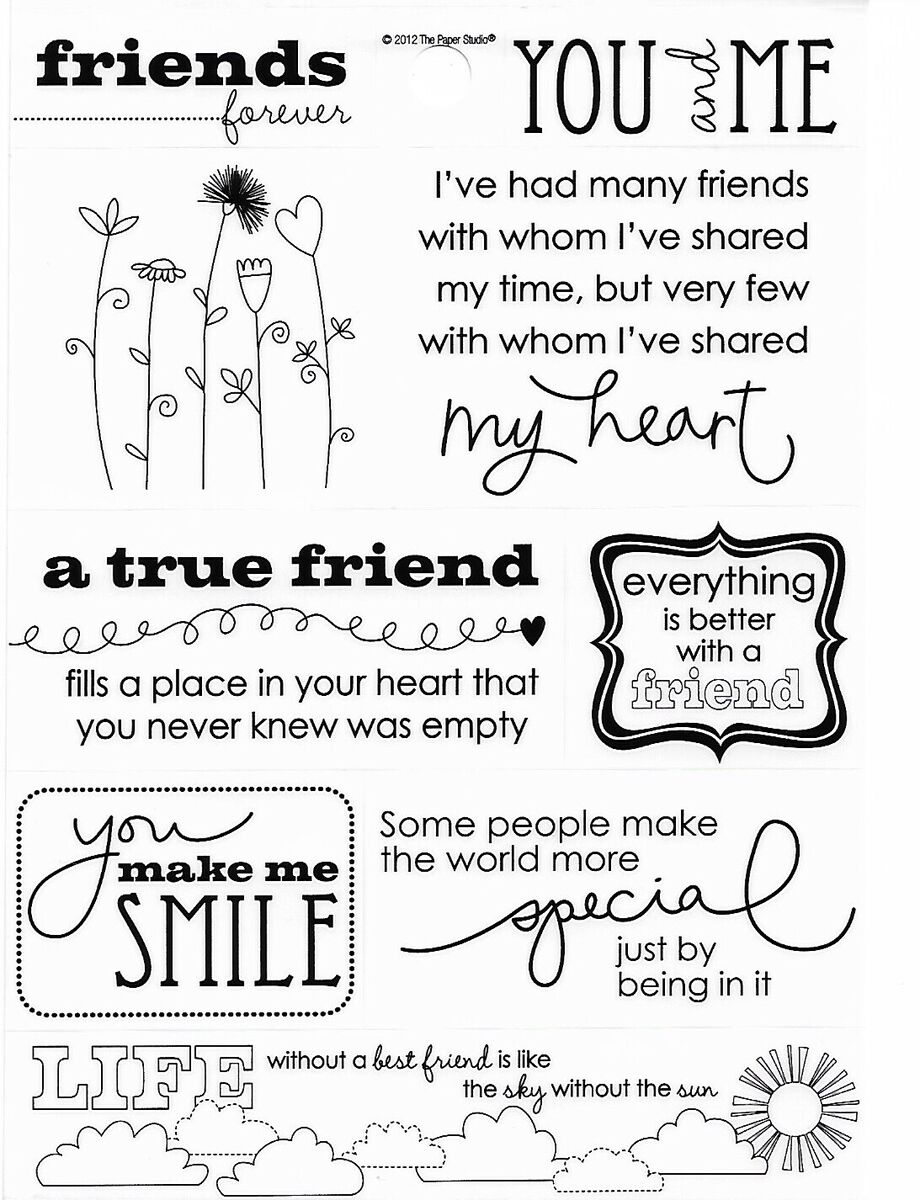 © 2012 The Paper Studio®
friends
forever
YOU and ME
I've had many friends
with whom I've shared
my time, but very few
with whom I've shared
my heart
a true friend
fills a place in your heart that
you never knew was empty
everything
is better
with a
friend
you
make me
SMILE
Some people make
the world more
special
just by
being in it
LIFE without a best friend is like
the sky without the sun